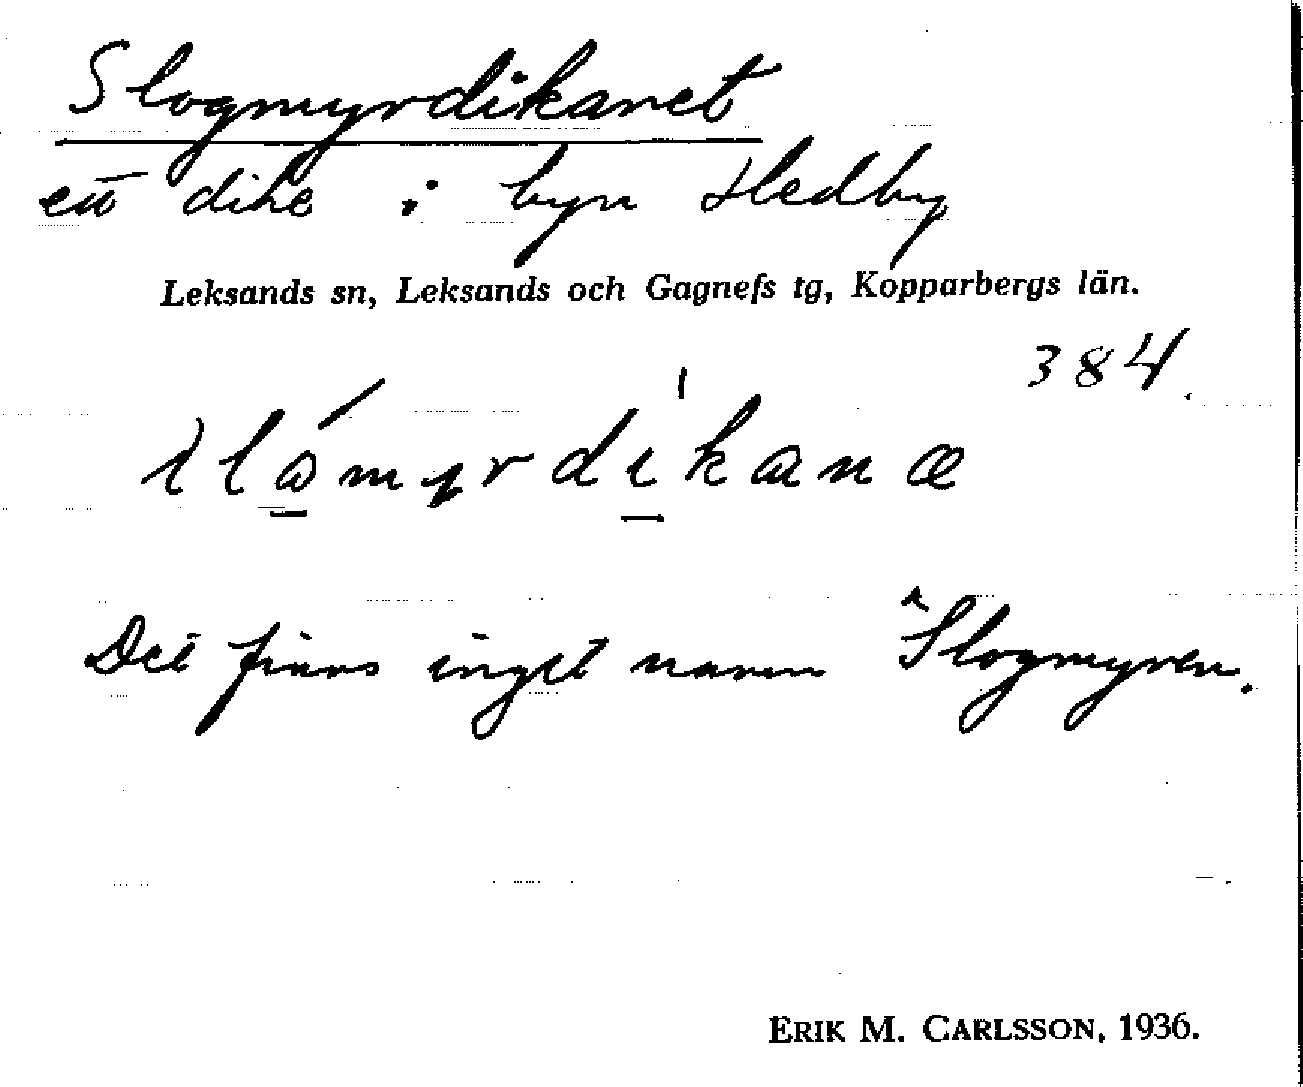 Slogmyrdikanet
ett dike i byn Hedby
Leksands sn, Leksands och Gagnefs tg, Kopparbergs län.
384.
Det finns inget namn *Slogmyren.
ERIK M. CARLSSON, 1936.